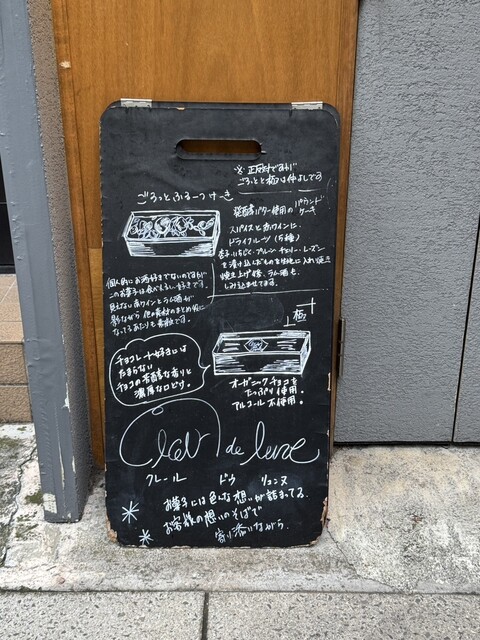 ※ 正反対ですが
ごろっとと極は仲よしです
ごろっとふるーつけーき
発酵バター使用のパウンド
ケーキ
スパイスと赤ワインに、
ドライフルーツ(5種)
杏子・いちじく・プルーン・チェリー・レーズン
を漬け込んだものを生地に入れ焼き
焼き上げ後、ラム酒も
しみ込ませてます。
個人的にお酒好きでないのですが
このお菓子は食べれるし好きです。
見えない赤ワインとラム酒が
影ながら他の素材のまとめ役に
なってるあたりも素敵です。
極
チョコレート好きには
たまらない
チョコの芳醇な香りと
濃厚な口どけ。
オーガニックチョコを
たっぷり使用
アルコール不使用。
Clair de lune
クレール ドゥ リュンヌ
お菓子には色んな想いが詰まってる。
お客様の想いのそばで
寄り添いながら。